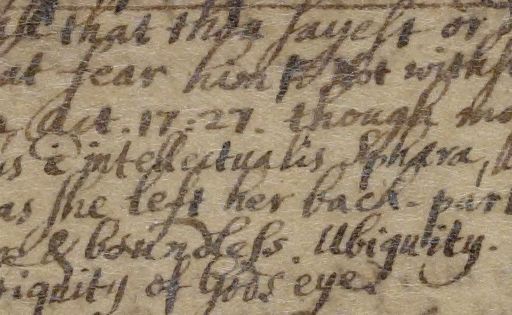 that thou sayest or
at fear him not withst
Act. 17:27. though
is è intellectualis Sphæra,
as she left her back-part
& boundless. Ubiquity.
iquity of Gods eye.